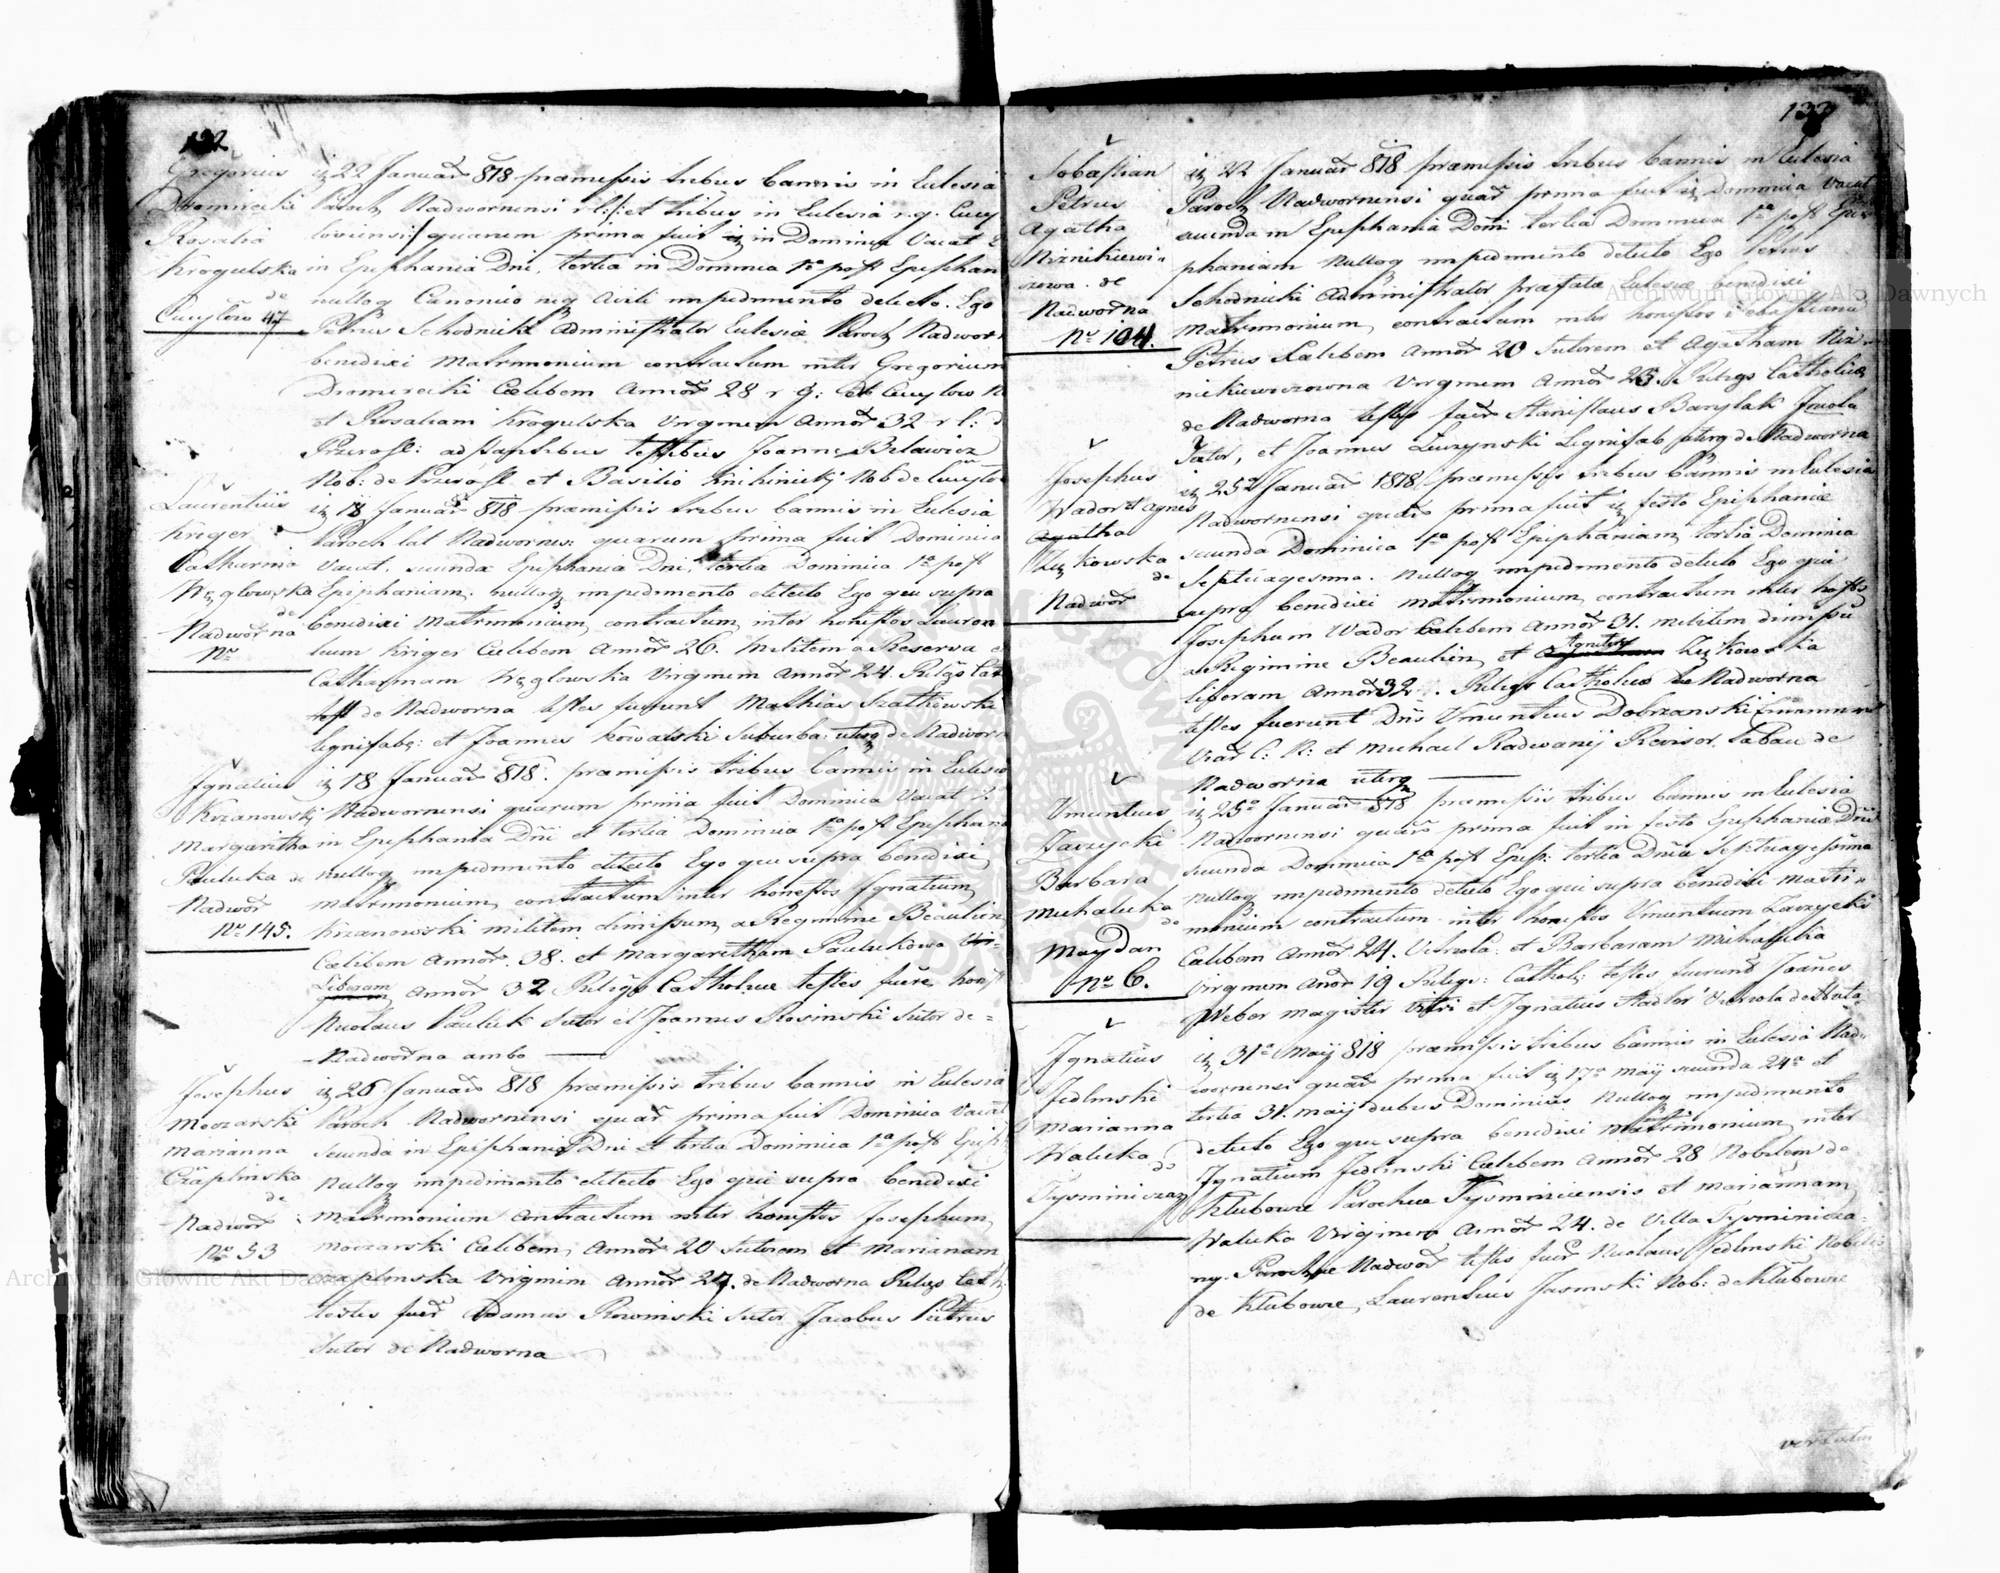 132
Gregorius
Dromirecki
Rosalia
Krogulska
de
Cucylow 47
22 Januar 818 præmissis tribus bannis in Eclesia
Paroch Nadwornensi r l: et tribus in Eclesia r. g. Cucy
loviensi quarum prima fuit in Dominica Vacat
in Epiphania Dni, tertia in Dominica 1ª post Epiphan
nulloq Canonico neq Civili impedimento detecto. Ego
Petrus Schodnicki Administrator Eclesiæ Paroch Nadwor
benedixi Matrimonium contractum inter Gregorium
Dromirecki Cælibem Annor 28 r g: de Cucylow
et Rosaliam Krogulska Virginem Annor 32 r l:
Przerosl: adstantibus testibus Joanne Bilawicz
Nob: de Przerosl et Basilio Knihinicki Nob de Cucylow
Laurentius
Kriger
Catharina
Węglowska
de
Nadworna
Nro
18 Januar 818 præmissis tribus bannis in Eclesia
Paroch lat Nadworness: quarum prima fuit Dominica
Vacat. secunda Epiphania Dni, tertia Dominica 1ª post
Epiphaniam. nulloq impedimento detecto Ego qui supra
benedixi Matrimonium, contractum, inter honestos Lauren
tium Kriger Cælibem Annor 26. Militem a Reserva
Catharinam Węglowska Virginem Annor 24. Religs Cat
de Nadworna testes fuerunt Mathias Szatkowski
lignifab: et Joannes Kowalski Suburba: uterq de Nadworn
Ignatius
Krzanowski
Margaritha
Pauluka de
Nadwor
Nro 145.
18 Januar 818. præmissis tribus bannis in Eclesia
Nadwornensi quarum prima fuit Dominica Vacat
in Epiphania Dni et tertia Dominica 1ª post Epiphan
nulloq impedimento detecto Ego qui supra benedixi
matrimonium, contractum inter honestos Ignatium
Krzanowski militem dimissum a Regimine Beaulieu
Cælibem Annor. 38. et Margaretham Paulukowa
Liberam Annor 32 Religs Catholicæ testes fuere hon
Nicolaus Pauluk Sutor et Joannes Rosinski Sutor de
Nadworna ambo
Josephus
Moczarski
Marianna
Czaplinska
de
Nadwor
Nro 53
26 Januar 818 præmissis tribus bannis in Eclesia
Paroch Nadwornensi quar prima fuit Dominica Vacat
Secunda in Epiphania Dni et tertia Dominica 1ª post Epiph
Nulloq impedimento detecto Ego qui supra benedixi
Matrimonium contractum inter honestos Josephum
Moczarski Cælibem, Annor 20 Sutorem et Mariannam
Czaplinska Virginem Annor 27. de Nadworna Religs Cath
testes fuer Adamus Rowinski Sutor Jacobus Petrus
Sutor de Nadworna
133
Sebastian
Petrus
Agatha
Niznikiewi
czowa. de
Nadworna
Nro 104.
22 Januar 818 præmissis tribus bannis in Eclesia
Paroch Nadwornensi quar prima fuit Dominica Vacat
secunda in Epiphania Domi tertia Dominica 1ª post Epi
phaniam Nulloq impedimento detecto Ego Petrus
Schodnicki Administrator præfatæ Eclesiæ benedixi
Matrimonium, contractum inter honestos Sebastianu
Petrus Cælibem Annor 20 Sutorem et Agatham Niz
nikiewiczowna Virginem Annor 25. Religs Catholicæ
de Nadworna testes fuer Stanislaus Barylak
et Joannes Lignifab uterq de Nadworna
Josephus
Wador et Agnes
Agatha
Zukowska
de
Nadwor
25ª Januar 1818 præmissis tribus bannis in Eclesia
Nadwornensi quar prima fuit festo Epiphaniæ
secunda Dominica 1ª post Epiphaniam, tertia Dominica
Septuagesima. Nulloq impedimento detecto Ego qui
supra benedixi Matrimonium, contractum inter hostos
Josephum Wador Cælibem Annor 31. militem dimissu
a Regimine Beaulieu, et Agnetem Zukowska
liberam Annor 32. Religs Catholicæ de Nadworna
testes fuerunt Dns Vincentius Dobrzanski
C: R: et Michael Radwanij Revisor Tabac de
Nadworna uterq
Vincentius
Zarzycki
Barbara
Michalucka
de
Maydan
Nro 6.
25ª Januar 818 præmissis tribus bannis in Eclesia
Nadwornensi quar prima fuit in festo Epiphaniæ Dni
secunda Dominica 1ª post Epip: tertia Dnica Septuagesima
Nulloq impedimento detecto Ego qui supra benedixi Matri
monium contractum inter honestos Vincentium Zarzycki
Cælibem Annor 24. et Barbaram Michalucka
Virginem Anor 19 Religs: Cathol: testes fuerunt Joanes
Weber Magister Vitri et Ignatius Stadler
Ignatius
Jedlinski
Marianna
Walicka
de
Tysminiczan
31ª Maij 818 præmissis tribus bannis in Eclesia Nad
wornensi quar prima fuit 17ª maij secunda 24ª et
tertia 31. maij dubus Dominicis Nulloq impedimento
detecto Ego qui supra benedixi Matrimonium, inter
Ignatium Jedlinski Cælibem Annor 28 Nobilem de
Klubowce Parochiæ Tysminicensis et Mariannam
Walicka Virginem Annor 24. de Villa Tysminicza
ny. Parochiæ Nadwor testes fuer Nicolaus Jedlinski Nobilis
de Klubowce, Laurentius Jasinski Nob: de Klubowce
Archiwum Główne Akt Dawnych
Archiwum Główne Akt Dawnych